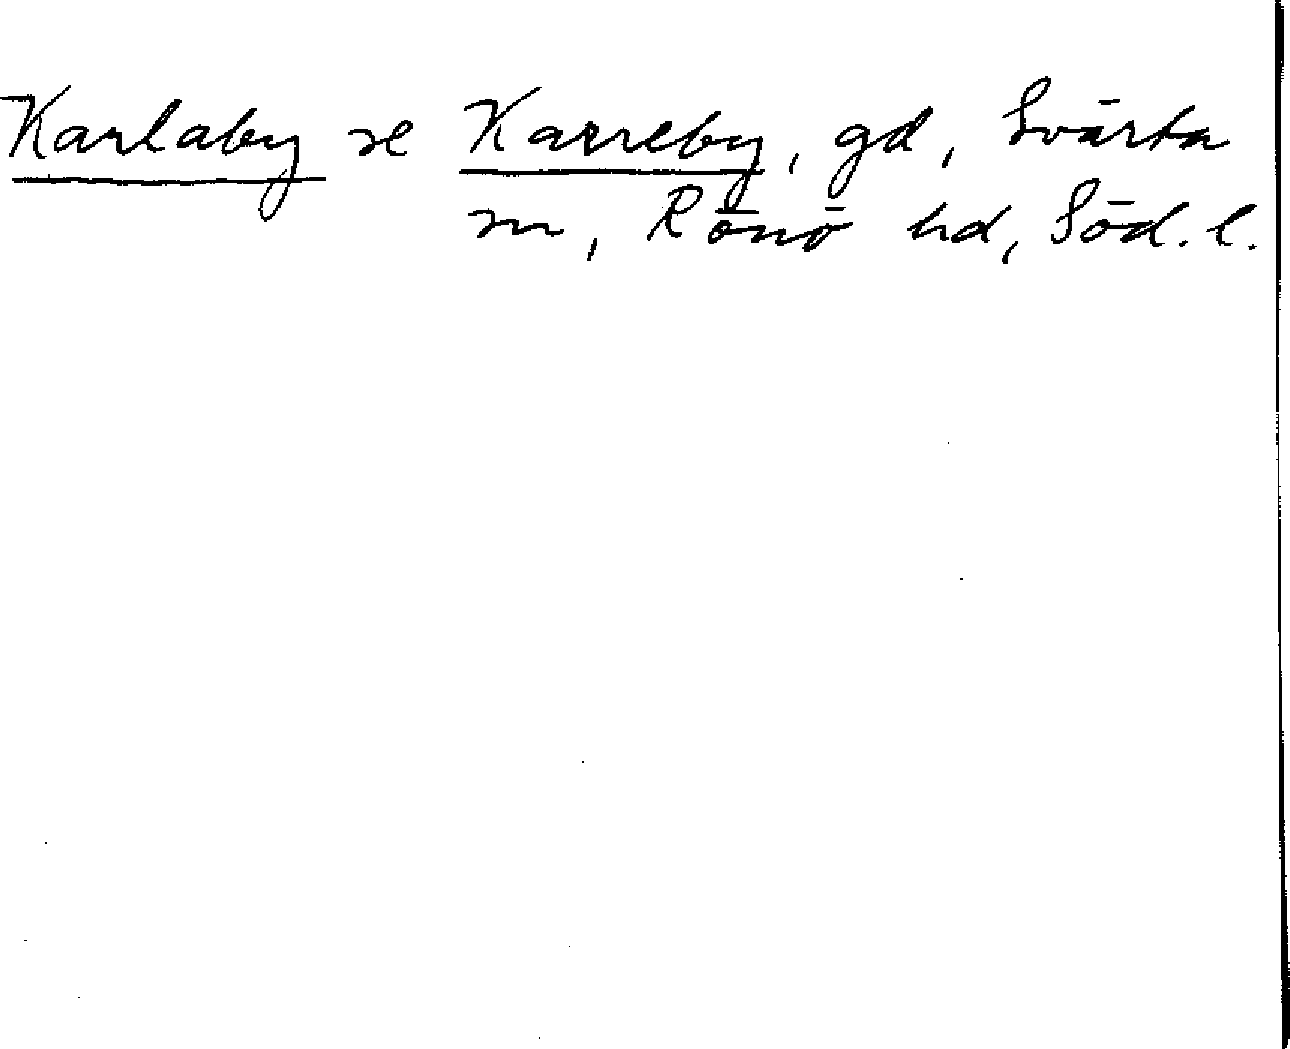 Karlaby se Karreby, gd, Svärta
sn, Rönö hd, Söd. l.